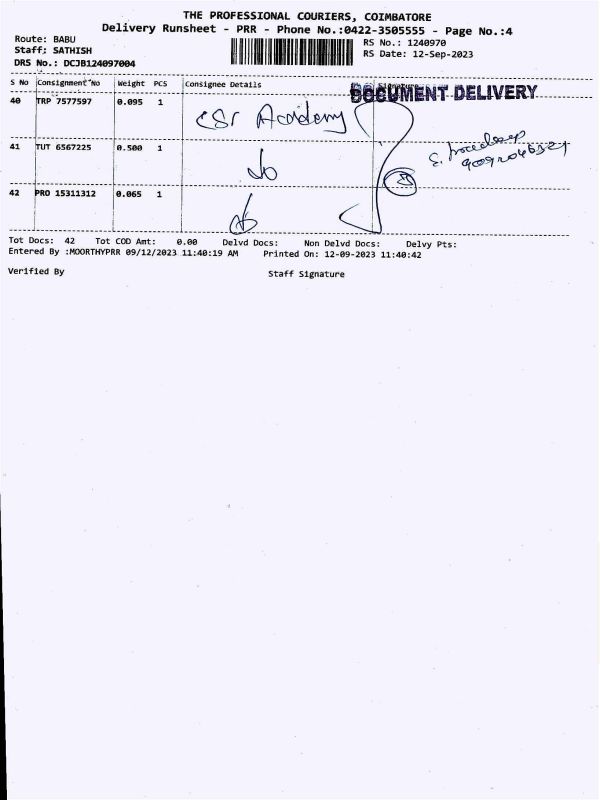 THE PROFESSIONAL COURIERS, COIMBATORE
Delivery Runsheet - PRR - Phone No.:0422-3505555 - Page No.:4
Route: BABU
RS No.: 1240970
Staff; SATHISH
RS Date: 12-Sep-2023
DRS No.: DCJB124097004
S No Consignment No Weight PCS Consignee Details Signature
DOCUMENT DELIVERY
40 TRP 7577597 0.095 1
CSr Academy
41 TUT 6567225 0.500 1
42 PRO 15311312 0.065 1
Tot Docs: 42 Tot COD Amt: 0.00 Delvd Docs: Non Delvd Docs: Delvy Pts:
Entered By :MOORTHYPRR 09/12/2023 11:40:19 AM Printed On: 12-09-2023 11:40:42
Verified By Staff Signature